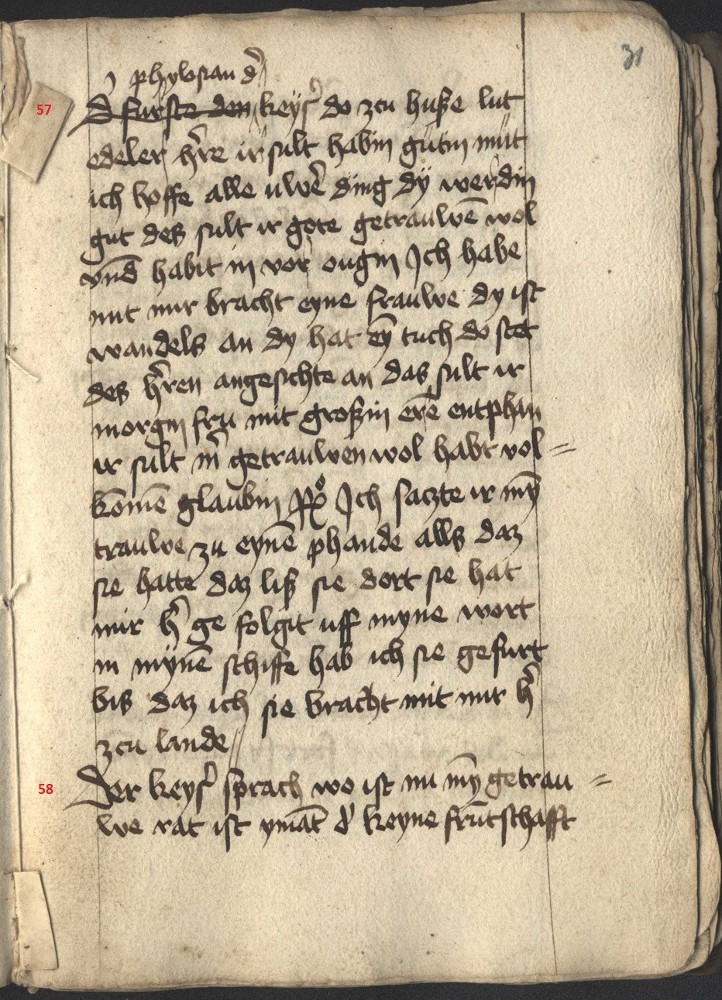 31
phylosian d'
57
d' furste den keys' do zcu huße lut
edeler h're ir sult habin gutin mut
ich hoffe alle uwe' ding dy werdin
gut des sult ir gote getrauwē wol
vnd habit in vor ougin Ich habe
mit mir bracht eyne frauwe dy ist
wandels an dy hat ey̅ tuch do stet
des h'ren angesichte an das sult ir
morgin fru mit großin ere entphan
ir sult in getrauwen wol habt vol=
kōmē glaubin Ich saczte ir my̅
trauwe zu eynē phande alls daz
sie hatte daz liß sie dort sie hat
mir h' ge folgit uff myne wort
in mynē schiffe hab ich sie gefurt
bis daz ich sie bracht mit mir h'
zcu lande
58
Der keys' sprach wo ist nu my̅ getrau=
we rat ist ymāt d' keyne frūtschafft